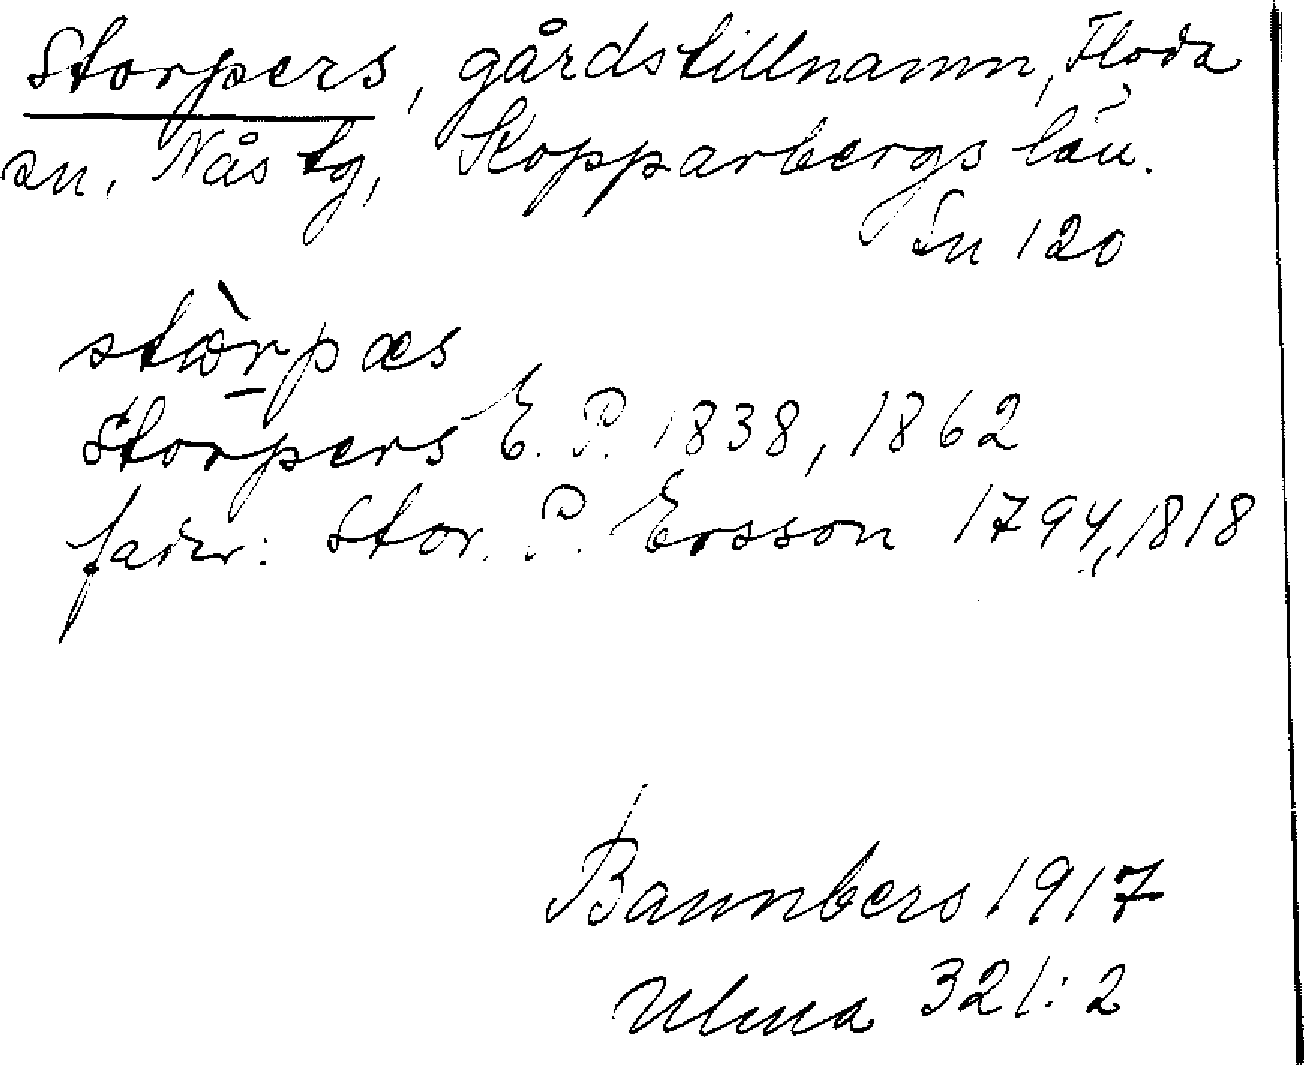 Storpers, gårdstillnamn, Floda
sn, Nås tg, Kopparbergs län.
Sn 120
stòrpæs
Storpers E. P. 1838, 1862
fader: Stor. P. Ersson 1794, 1818
Bannbers 1917
Ulma 321:2